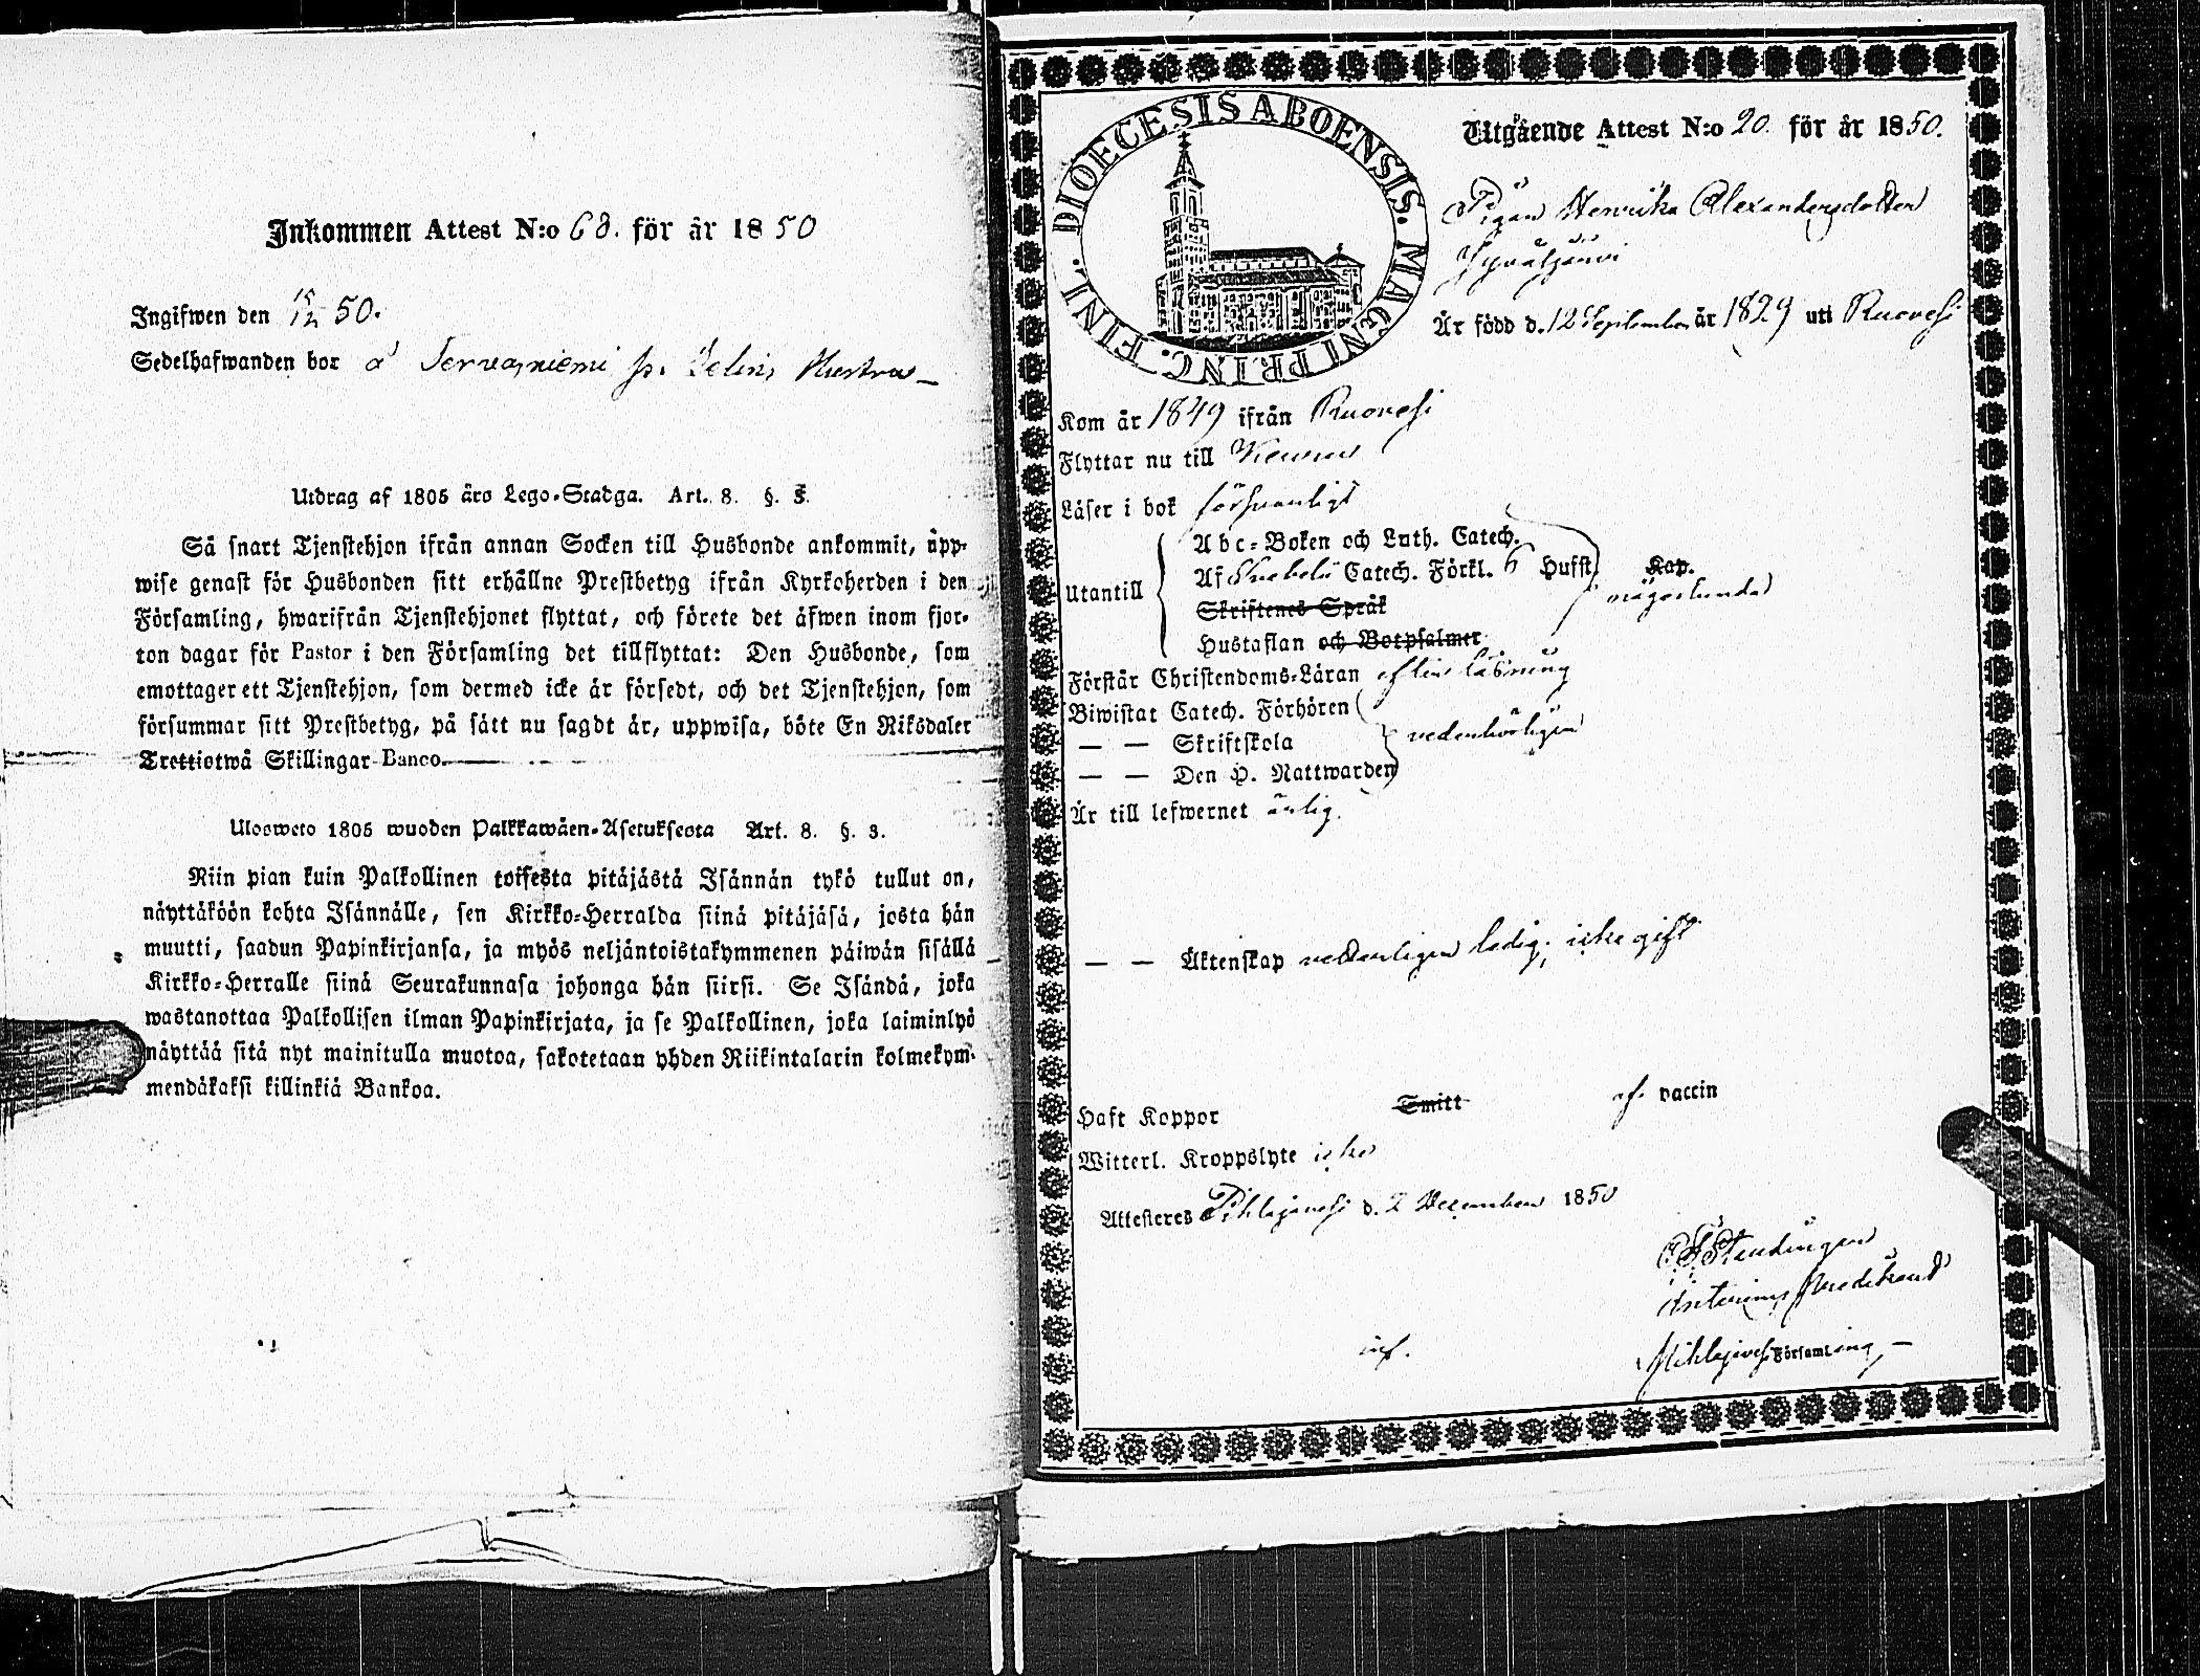 Inkommen Attest N:o 68. för år 1850
Ingifwen den 15/12 50.
Sedelhafwanden bor å Tervaniemi på
Utdrag af 1805 års Lego-Stadga. Art. 8. §. 3.
Så snart Tjenstehjon ifrån annan Socken till Husbonde ankommit, upp-
wise genast för Husbonden sitt erhållne Prestbetyg ifrån Kyrkoherden i den
Församling, hwarifrån Tjenstehjonet flyttat, och förete det äfwen inom fjor-
ton dagar för Pastor i den Församling det tillflyttat: Den Husbonde, som
emottager ett Tjenstehjon, som dermed icke är försedt, och det Tjenstehjon, som
försummar sitt Prestbetyg, på sätt nu sagdt är, uppwisa, böte En Riksdaler
Trettiotwå Skillingar Banco.
Ulosweto 1805 wuoden Palkkawäen-Asetuksesta Art. 8. §. 3.
Niin pian kuin Palkollinen toisesta pitäjästä Isännän tykö tullut on,
näyttäköön kohta Isännälle, sen Kirkko-Herralda siinä pitäjäsä, josta hän
muutti, saadun Papinkirjansa, ja myös neljäntoistakymmenen päiwän sisällä
Kirkko-Herralle siinä Seurakunnasa johonga hän siirsi. Se Isändä, joka
wastanottaa Palkollisen ilman Papinkirjata, ja se Palkollinen, joka laiminlyö
näyttää sitä nyt mainitulla muotoa, sakotetaan yhden Riikintalarin kolmekym-
mendäkaksi killinkiä Bankoa.
DIOECESIS ABOENSIS. MAGNI PRINC. FINL.
Utgående Attest N:o 20. för år 1850.
Pigan Henrika Alexandersdotter
Är född d. 12 September år 1829 uti Ruovesi
Kom år 1849 ifrån Ruovesi
Flyttar nu till Keuru
Läser i bok försvarligt
Utantill
Abc-Boken och Luth. Catech.
Af Svebelii Catech. Förkl. 6 Hufst. Kap.
någorlunda
Skriftenes Språk
Hustaflan och Botpsalmer
Förstår Christendoms-Läran efter läsning
Biwistat Catech. Förhören
— — Skriftskola vederbörligen
— — Den H. Nattwarden
Är till lefwernet ärlig.
— — Äktenskap vetterligen ledig, icke gift
Haft Koppor Smitt af. vaccin
Witterl. Kroppslyte icke
Attesteres Pihlajavesi d. 2 December 1850
inf.
Pihlajavesi Församling,